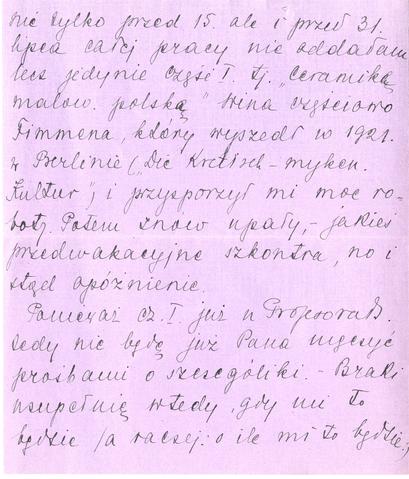 nie tylko przed 15. ale i przed 31.
lipca całej pracy nie oddałam
lecz jedynie część I. tj. „Ceramikę
malow. polską" Wina częściowo
Fimmena, który wyszedł w 1921.
w Berlinie („Die Kretisch-myken.
Kultur", i przysporzył mi moc ro-
boty. Potem znów upały, - jakieś
przedwakacyjne szkontra, no i
stąd opóźnienie.
Ponieważ cz. I. już u Profesora
tedy nie będę już Pana męczyć
prośbami o szczególiki. - Braki
uzupełnię wtedy, gdy mi to
będzie /a raczej: o ile mi to będzie,